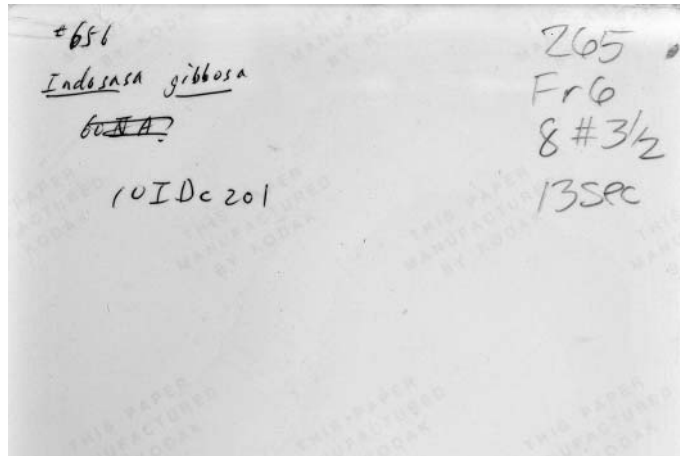 #656
Indosasa gibbosa
10IDc201
265
Fr6
8 #3 1/2
13sec
THIS PAPER
MANUFACTURED
BY KODAK